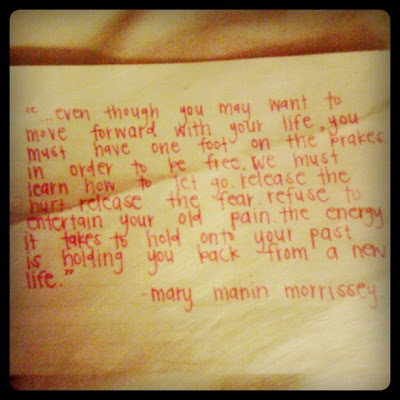 "...even though you may want to
move forward with your life, you
must have one foot on the brakes.
in order to be free, we must
learn how to let go. release the
hurt. release the fear. refuse to
entertain your old pain. the energy
it takes to hold onto your past
is holding you back from a new
life."
-mary manin morrissey